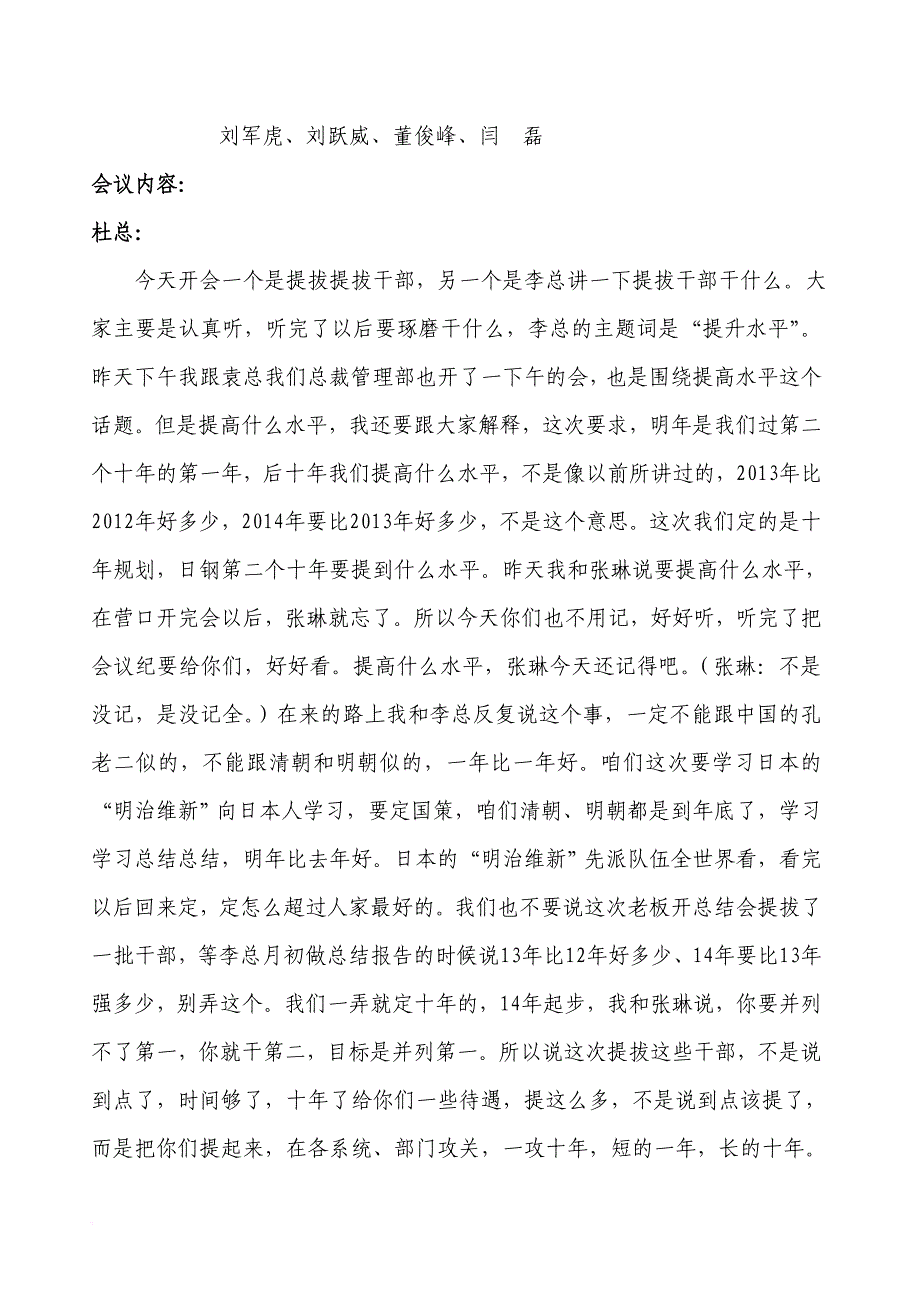 刘军虎、刘跃威、董俊峰、闫　磊
会议内容：
杜总：
今天开会一个是提拔提拔干部，另一个是李总讲一下提拔干部干什么。大
家主要是认真听，听完了以后要琢磨干什么，李总的主题词是“提升水平”。
昨天下午我跟袁总我们总裁管理部也开了一下午的会，也是围绕提高水平这个
话题。但是提高什么水平，我还要跟大家解释，这次要求，明年是我们过第二
个十年的第一年，后十年我们提高什么水平，不是像以前所讲过的，2013年比
2012年好多少，2014年要比2013年好多少，不是这个意思。这次我们定的是十
年规划，日钢第二个十年要提到什么水平。昨天我和张琳说要提高什么水平，
在营口开完会以后，张琳就忘了。所以今天你们也不用记，好好听，听完了把
会议纪要给你们，好好看。提高什么水平，张琳今天还记得吧。（张琳：不是
没记，是没记全。）在来的路上我和李总反复说这个事，一定不能跟中国的孔
老二似的，不能跟清朝和明朝似的，一年比一年好。咱们这次要学习日本的
“明治维新”向日本人学习，要定国策，咱们清朝、明朝都是到年底了，学习
学习总结总结，明年比去年好。日本的“明治维新”先派队伍全世界看，看完
以后回来定，定怎么超过人家最好的。我们也不要说这次老板开总结会提拔了
一批干部，等李总月初做总结报告的时候说13年比12年好多少、14年要比13年
强多少，别弄这个。我们一弄就定十年的，14年起步，我和张琳说，你要并列
不了第一，你就干第二，目标是并列第一。所以说这次提拔这些干部，不是说
到点了，时间够了，十年了给你们一些待遇，提这么多，不是说到点该提了，
而是把你们提起来，在各系统、部门攻关，一攻十年，短的一年，长的十年。